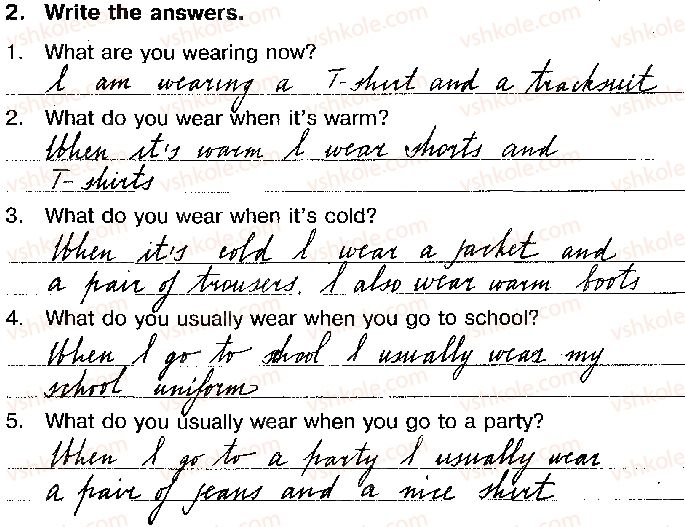 2. Write the answers.
1. What are you wearing now?
I am wearing a T-shirt and a tracksuit
2. What do you wear when it's warm?
When it's warm I wear shorts and
T-shirts
3. What do you wear when it's cold?
When it's cold I wear a jacket and
a pair of trousers. I also wear warm boots
4. What do you usually wear when you go to school?
When I go to school I usually wear my
school uniform
5. What do you usually wear when you go to a party?
When I go to a party I usually wear
a pair of jeans and a nice shirt